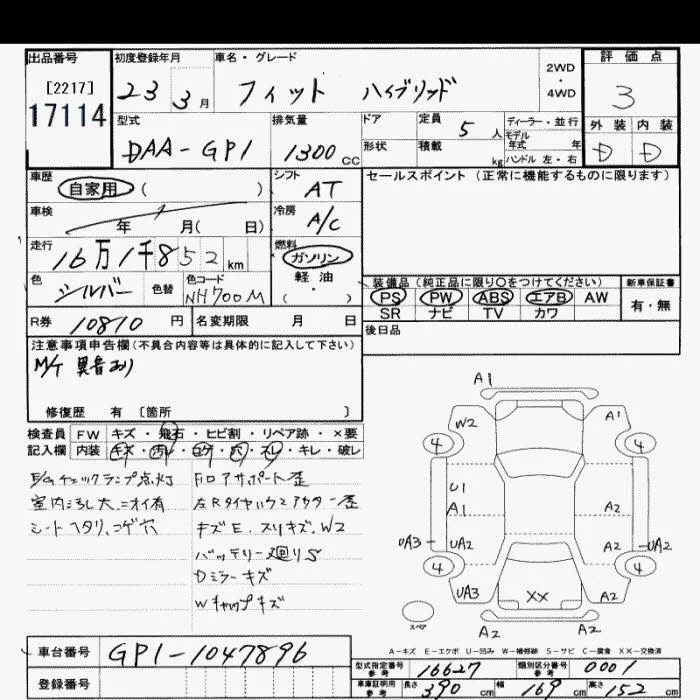 出品番号
[2217]
17114
初度登録年月
23 3月
車名・グレード
フィット ハイブリッド
2WD
・
4WD
評価点
3
型式
DAA-GP1
排気量
1300cc
ドア
形状
定員 5人
積載 kg
ディーラー・並行
モデル年式 年
ハンドル 左・右
外装 内装
D D
車歴
自家用 ( )
シフト
AT
セールスポイント (正常に機能するものに限ります)
車検
年 月( 日)
冷房
A/C
走行
16万1千852km
燃料
ガソリン
軽油
( ・ )
色
シルバー
色替
色コード
NH700M
装備品(純正品に限り○をつけてください)
PS PW ABS エアB AW
SR ナビ TV カワ
新車保証書
有・無
R券 10810円
名変期限 月 日
後日品
注意事項申告欄(不具合内容等は具体的に記入して下さい)
M/T 異音あり
修復歴 有 [箇所 ]
検査員
記入欄
FW キズ・飛石・ヒビ割・リペア跡・×要
内装 キズ・汚レ・コゲ・穴・スレ・キレ・破レ
E/Gチェックランプ点灯
室内汚レ大、ニオイ有
シートヘタリ、コゲ穴
FロアサポートE歪
左Rタイヤハウスアウター歪
キズE、スリキズ、W2
バッテリー廻りS
Dミラーキズ
Wキャップキズ
A1
W2
A1
4
4
U1
A1
A2
UA3
UA2
A2
UA2
4
4
UA3
XX
A2
スペア
A2
A2
A-キズ E-エクボ U-凹み W-補修跡 S-サビ C-腐食 XX-交換済
車台番号 GP1-1047896
登録番号
型式指定番号
参考
16627
類別区分番号
参考
0001
車庫証明用
参考
長さ 390cm
幅 169cm
高さ 152cm